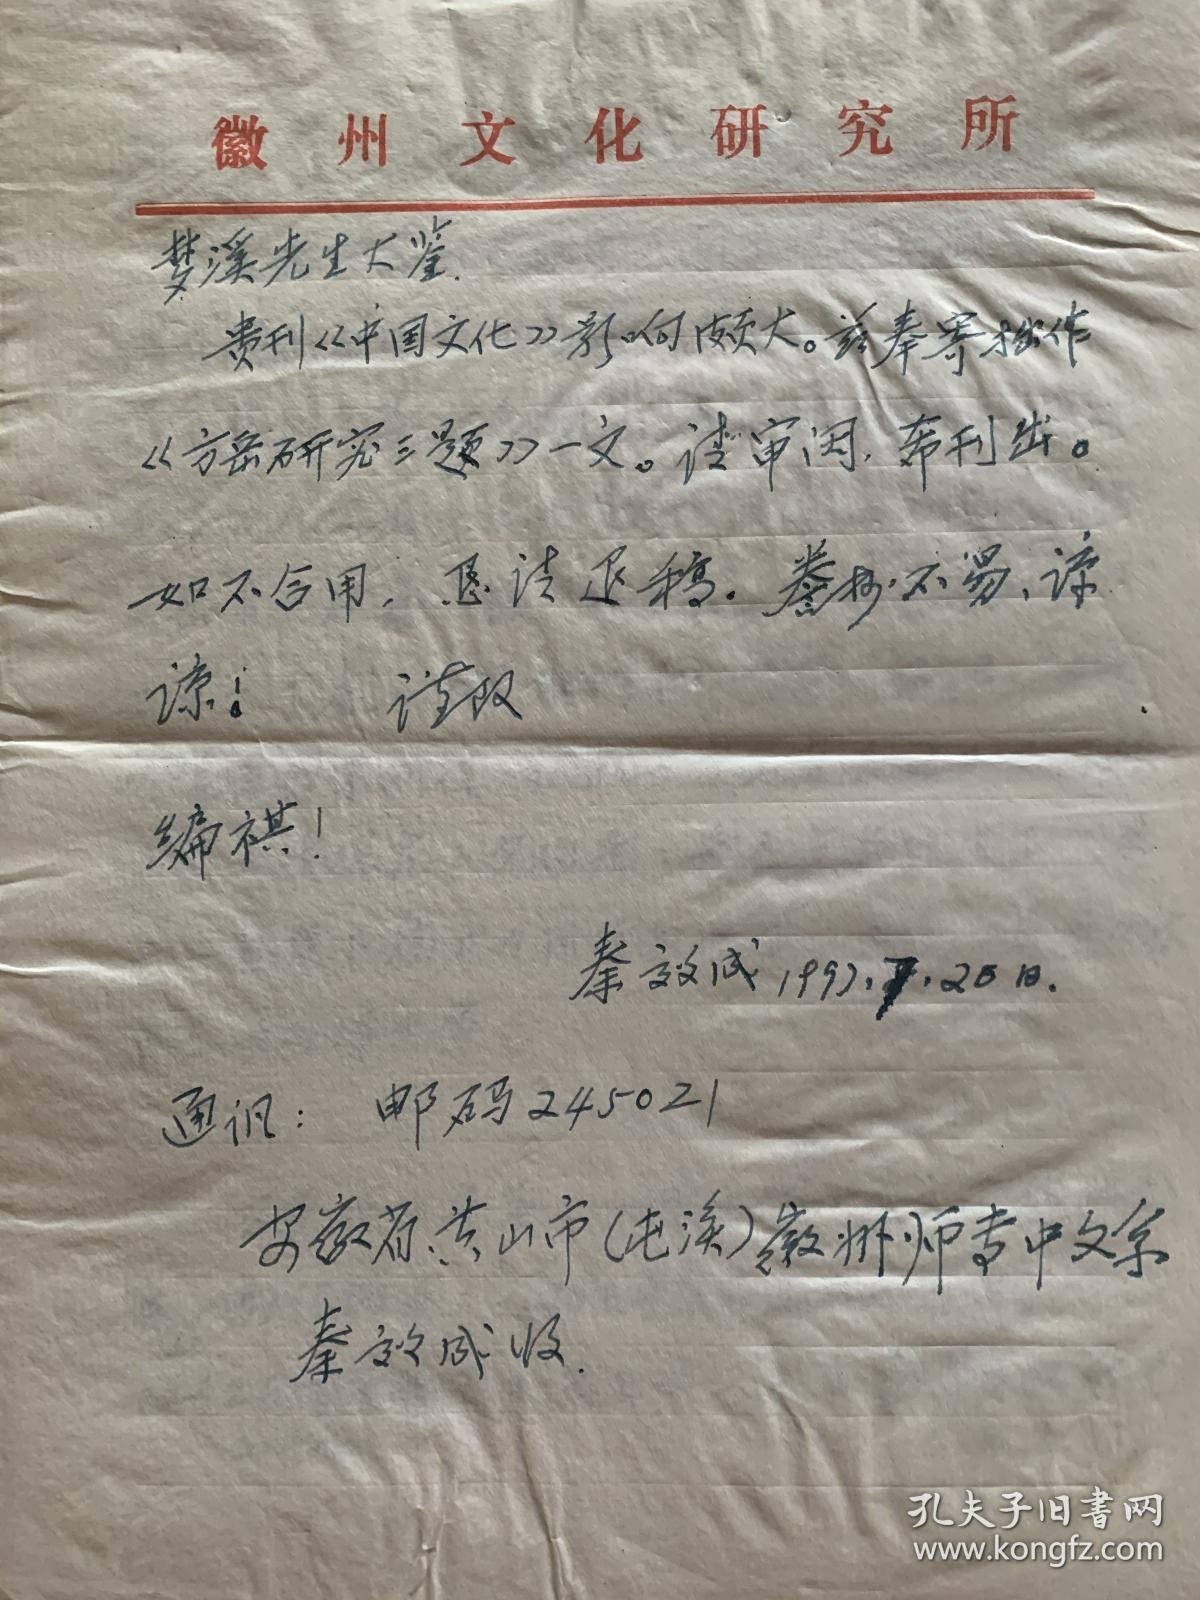 徽州文化研究所
梦溪先生大鉴.
贵刊《中国文化》影响颇大。兹奉寄拙作
《方岳研究三题》一文。请审阅,幸刊出。
如不合用,恳请退稿。誊抄不易,谅
谅! 谨致
编祺!
秦效成 1997.7.20日.
通讯: 邮码245021
安徽省黄山市(屯溪)徽州师专中文系
秦效成收.
孔夫子旧书网
www.kongfz.com